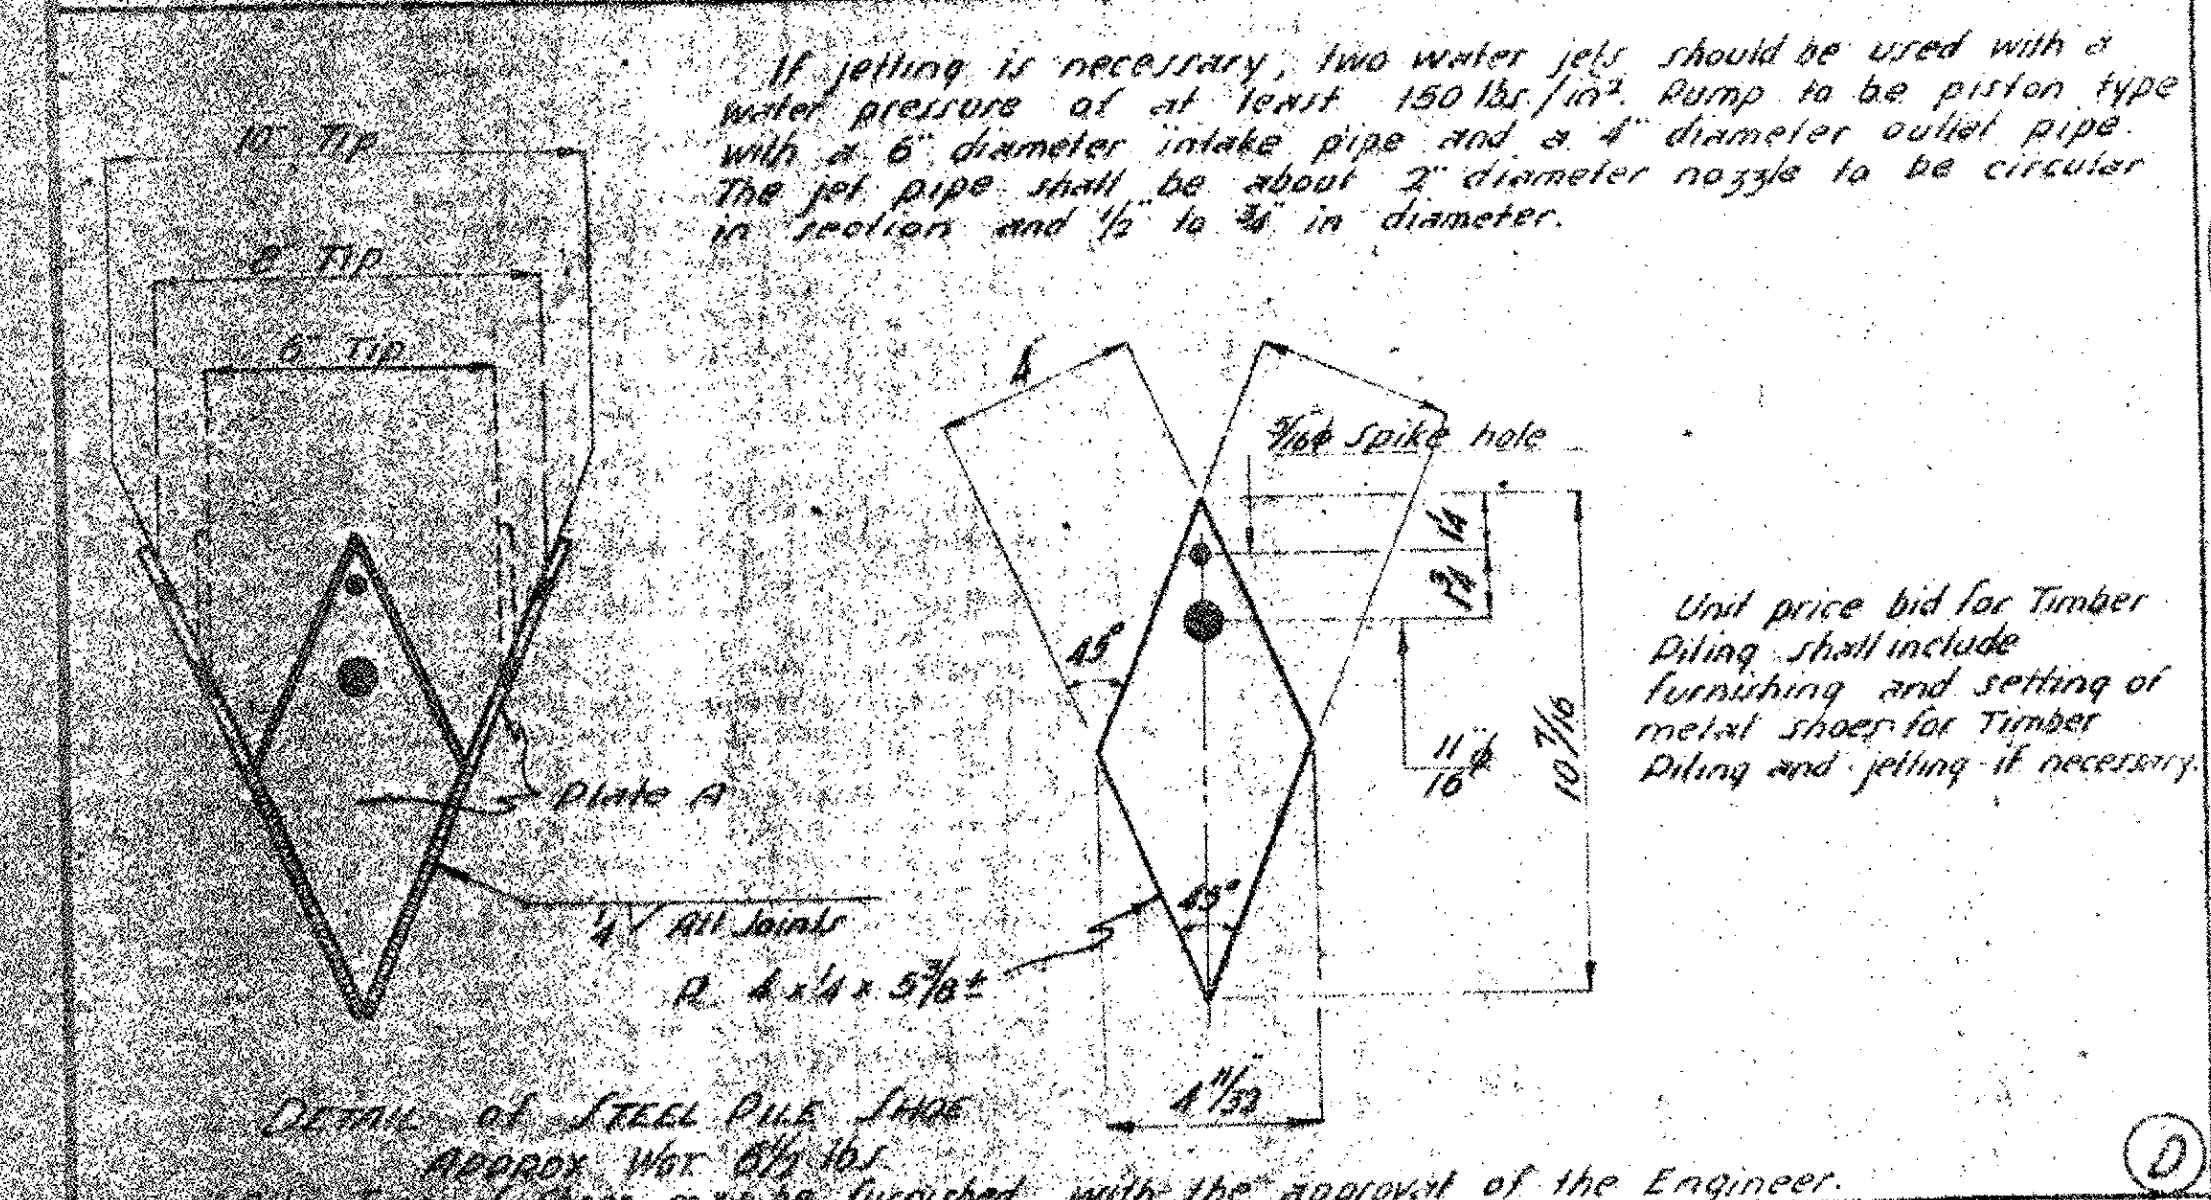 If jetting is necessary, two water jets should be used with a
water pressure of at least 150 lbs./in². Pump to be piston type
with a 6" diameter intake pipe and a 4" diameter outlet pipe.
The jet pipe shall be about 2" diameter nozzle to be circular
in section and 1/2" to 3/4" in diameter.
10" Tip
8" Tip
6" Tip
4"
5/16"ϕ Spike hole
1 1/4
45°
11"/16 ϕ
10 7/16
Unit price bid for Timber
Piling shall include
furnishing and setting of
metal shoes for Timber
Piling and jetting if necessary.
Plate A
1/4 V All Joints
45°
4 x 1/4 x 5 3/8 ±
4 11/32"
DETAIL of STEEL PILE SHOE
APPROX WGT. 6 1/2 lbs
be furnished with the approval of the Engineer.
D